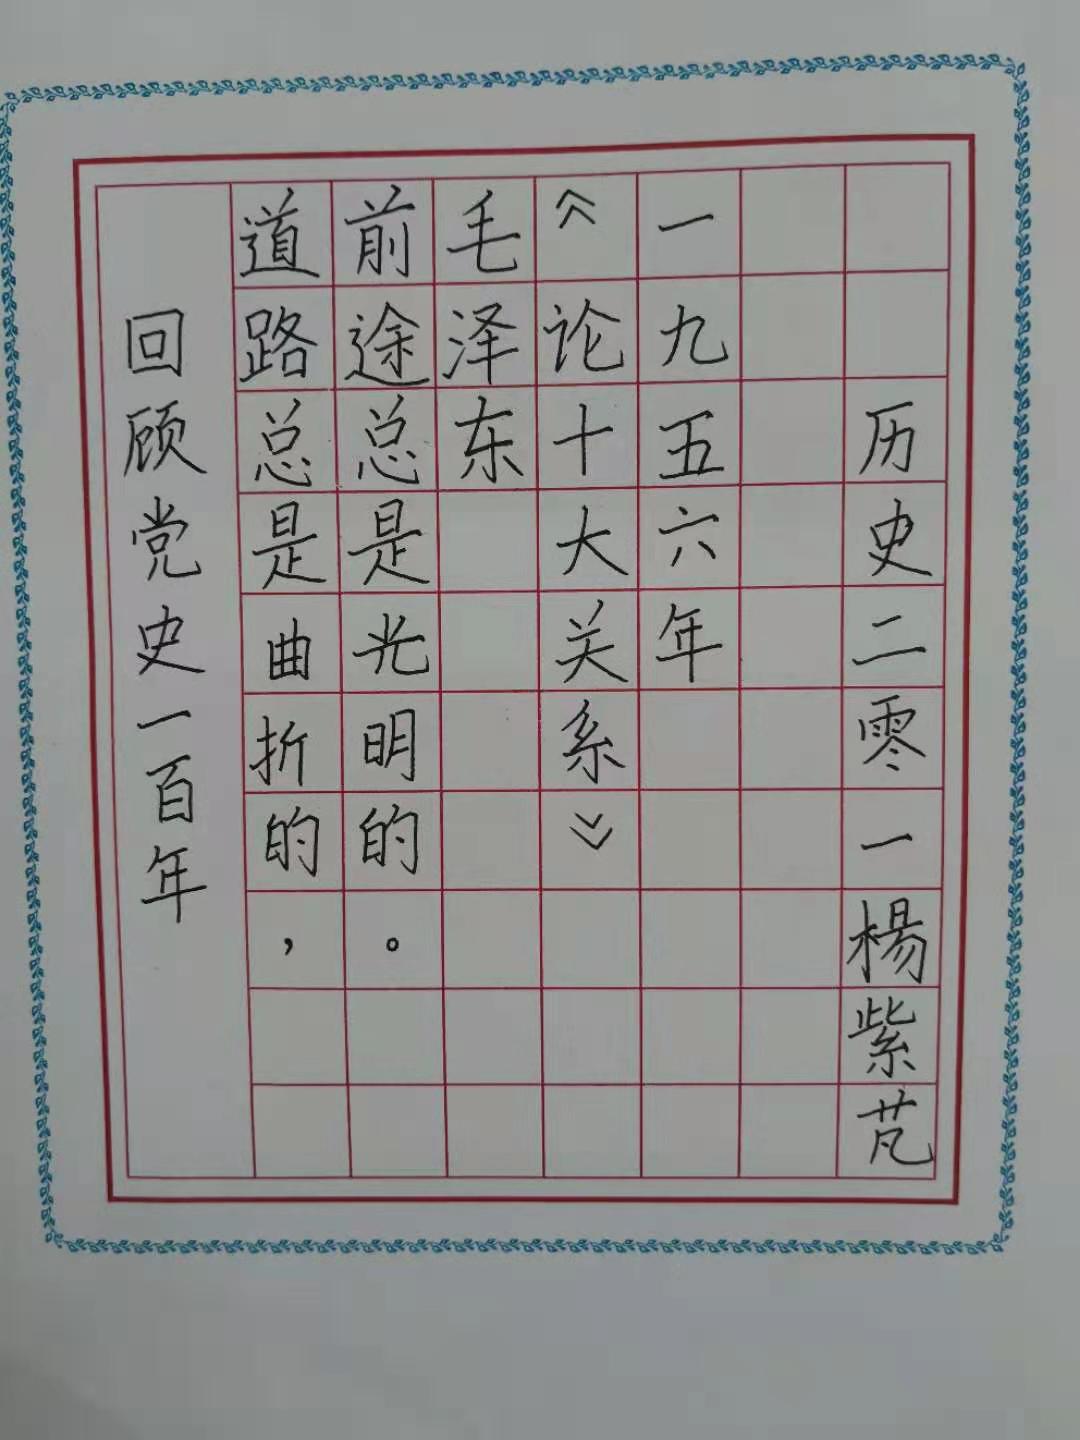 回顾党史一百年
道路总是曲折的，
前途总是光明的。
毛泽东
《论十大关系》
一九五六年
历史二零一楊紫芃